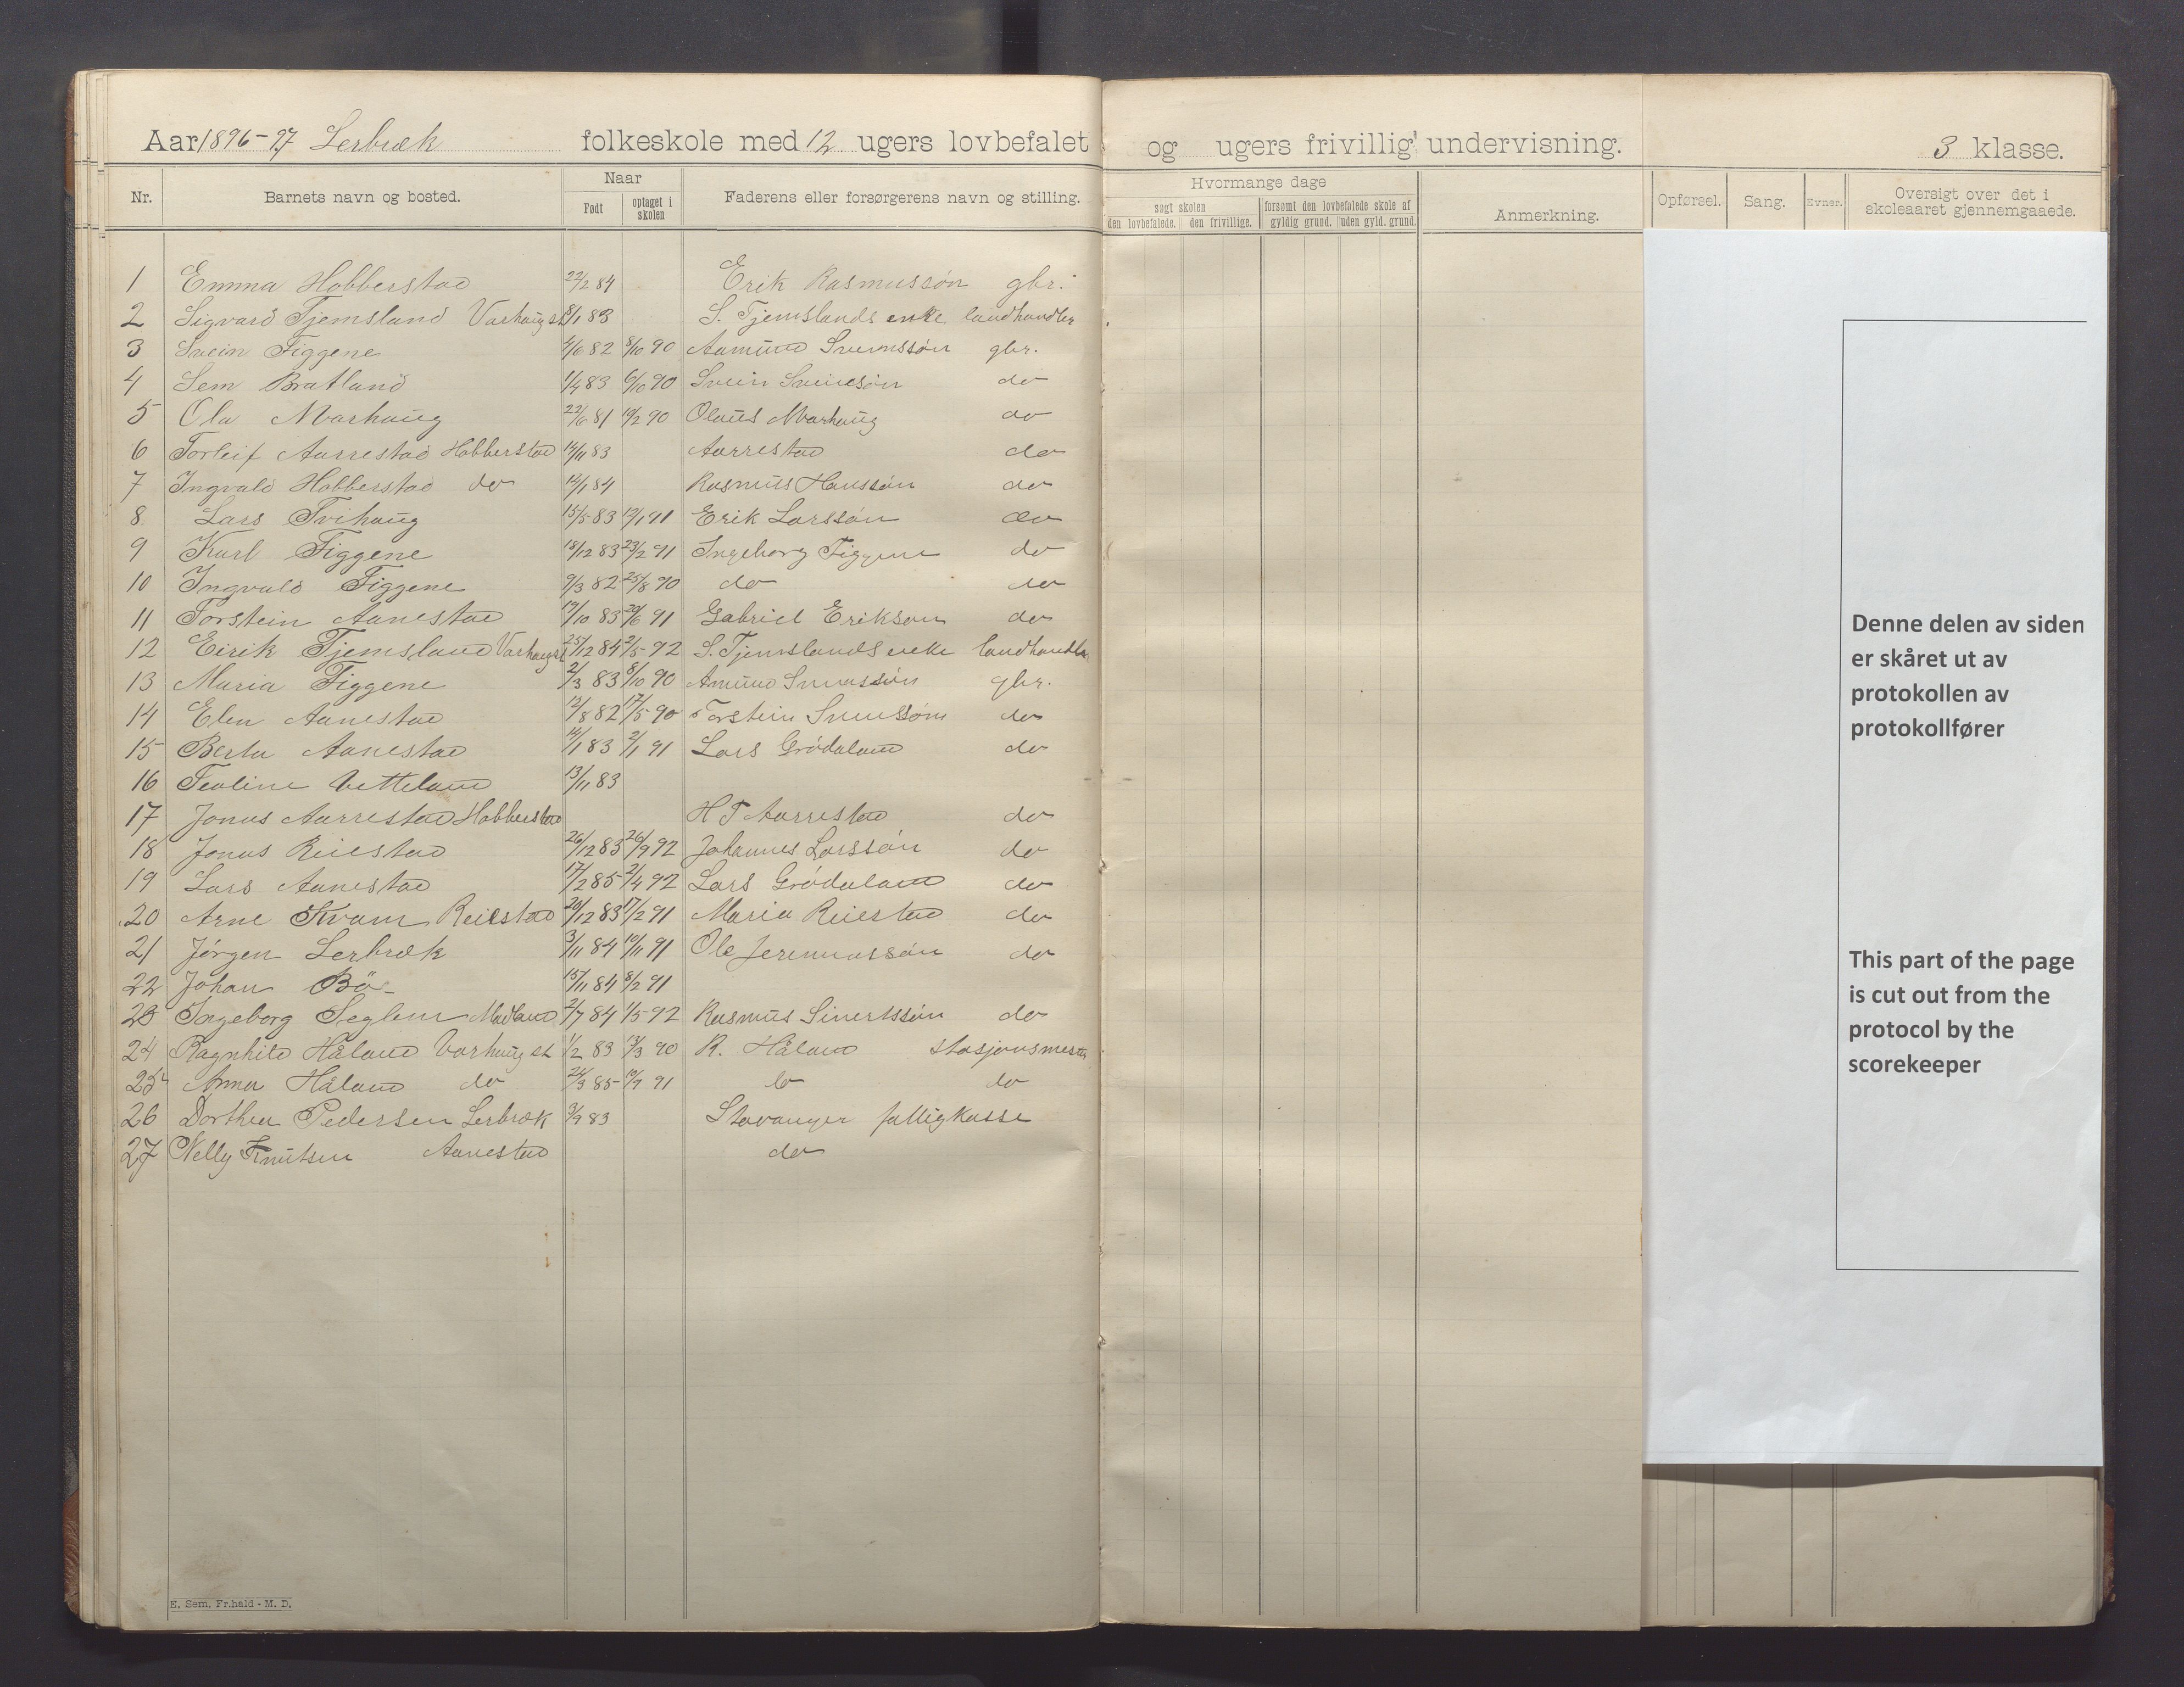 Aar 1896-97 Lerbræk folkeskole med 12 ugers lovbefalet og ugers frivillig undervisning. 3 klasse.
Nr. Barnets navn og bosted. Naar Født optaget i skolen Faderens eller forsørgerens navn og stilling. Hvormange dage søgt skolen den lovbefalede. den frivillige. forsømt den lovbefalede skole af gyldig grund. uden gyld. grund. Anmerkning. Opførsel. Sang. Evner. Oversigt over det i skoleaaret gjennemgaaede.
1 Emma Hobberstad 22/2 84 Erik Rasmussøn gbr.
2 Sigvard Tjemsland Varhaug st 83 S. Tjemslands enke landhandler
3 Svein Tiggene 4/6 82 8/10 90 Aamund Sveinssøn gbr.
4 Sem Bratland 1/4 83 6/10 90 Svein Sveinsøn do
5 Ola Marhaug 22/6 81 19/2 90 Olaus Marhaug do
6 Torleif Aarrestad Hobberstad 14/11 83 Aarrestad do
7 Ingvald Hobberstad do 12/1 84 Rasmus Hanssøn do
8 Lars Tvihaug 15/5 83 19/1 91 Erik Larssøn do
9 Karl Tiggene 18/12 83 23/2 91 Ingeborg Tiggene do
10 Ingvald Tiggene 9/3 82 25/8 90 do do
11 Torstein Aanestad 19/10 83 20/6 91 Gabriel Erikson do
12 Eirik Tjemsland Varhaug st 25/12 84 2/5 92 S. Tjemslands enke landhandler
13 Maria Tiggene 2/3 83 8/10 90 Amund Sveinssøn gbr.
14 Elen Aanestad 12/8 82 17/5 90 Torstein Sveinssøn do
15 Berta Aanestad 14/1 83 2/1 91 Lars Grødaland do
16 Tealine Vetteland 13/11 83
17 Jonas Aarrestad Hobberstad H T Aarrestad do
18 Jonas Reiestad 26/12 83 26/9 92 Johannes Larssøn do
19 Lars Aanestad 17/2 85 2/4 92 Lars Grødaland do
20 Arne Kvam Reiestad 20/12 83 17/2 91 Maria Reiestad do
21 Jørgen Lerbræk 3/11 84 10/11 91 Ole Jeremiassøn do
22 Johan Bø 15/11 84 8/2 91
23 Ingeborg Seglem Madland 2/7 84 1/5 92 Rasmus Sivertssøn do
24 Ragnhild Håland Varhaug st 1/2 83 13/3 90 R. Håland stasjonsmester
25 Anna Håland do 24/3 85 19/9 91 do do
26 Dorthea Pedersen Lerbræk 3/9 83 Stavanger fattigkasse
27 Nelly Knutsen Aanestad do
E. Sem, Fr.hald - M. D.
Denne delen av siden
er skåret ut av
protokollen av
protokollfører
This part of the page
is cut out from the
protocol by the
scorekeeper